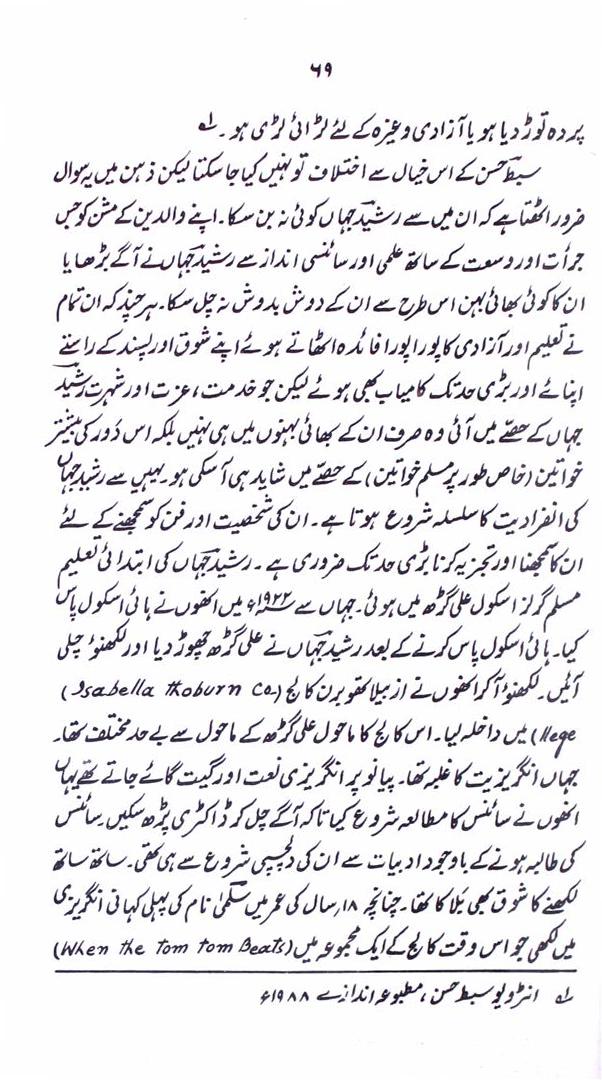 ۶۹
پردہ توڑ دیا ہو یا آزادی وغیرہ کے لئے لڑائی لڑی ہو ۔ لہ
سبطِ حسن کے اس خیال سے اختلاف تو نہیں کیا جا سکتا لیکن ذہن میں یہ سوال
ضرور اٹھتا ہے کہ ان میں سے رشید جہاں کوئی نہ بن سکا۔ اپنے والدین کے مشن کو جس
جرأت اور وسعت کے ساتھ علمی اور سائنسی انداز سے رشید جہاں نے آگے بڑھایا
ان کا کوئی بھائی بہن اس طرح سے ان کے دوش بدوش نہ چل سکا۔ ہر چند کہ ان تمام
نے تعلیم اور آزادی کا پورا پورا فائدہ اٹھاتے ہوئے اپنے شوق اور پسند کے راستے
اپنائے اور بڑی حد تک کامیاب بھی ہوئے لیکن جو خدمت، عزت اور شہرت رشید
جہاں کے حصّے میں آئی وہ صرف ان کے بھائی بہنوں میں ہی نہیں بلکہ اس دَور کی بیشتر
خواتین (خاص طور پر مسلم خواتین) کے حصّے میں شاید ہی آ سکی ہو۔ یہیں سے رشید جہاں
کی انفرادیت کا سلسلہ شروع ہوتا ہے۔ ان کی شخصیت اور فن کو سمجھنے کے لئے
ان کا سمجھنا اور تجزیہ کرنا بڑی حد تک ضروری ہے ۔ رشید جہاں کی ابتدائی تعلیم
مسلم گرلز اسکول علی گڑھ میں ہوئی۔ جہاں سے ۱۹۲۲ء میں انھوں نے ہائی اسکول پاس
کیا۔ ہائی اسکول پاس کرنے کے بعد رشید جہاں نے علی گڑھ چھوڑ دیا اور لکھنؤ چلی
آئیں۔ لکھنؤ آ کر انھوں نے ازبیلا تھوبرن کالج (Isabella Thoburn Co-
llege) میں داخلہ لیا۔ اس کالج کا ماحول علی گڑھ کے ماحول سے بے حد مختلف تھا۔
جہاں انگریزیت کا غلبہ تھا۔ پیانو پر انگریزی نعت اور گیت گائے جاتے تھے یہاں
انھوں نے سائنس کا مطالعہ شروع کیا تاکہ آگے چل کر ڈاکٹری پڑھ سکیں۔ سائنس
کی طالبہ ہونے کے باوجود ادبیات سے ان کی دلچسپی شروع سے ہی تھی۔ ساتھ ساتھ
لکھنے کا شوق بھی بَلا کا تھا۔ چنانچہ ۱۸ سال کی عمر میں سلمٰی نام کی پہلی کہانی انگریزی
میں لکھی جو اس وقت کالج کے ایک مجموعہ میں (When the tom tom Beats)
لہ انٹرویو سبط حسن، مطبوعہ اندازے ۱۹۸۸ء